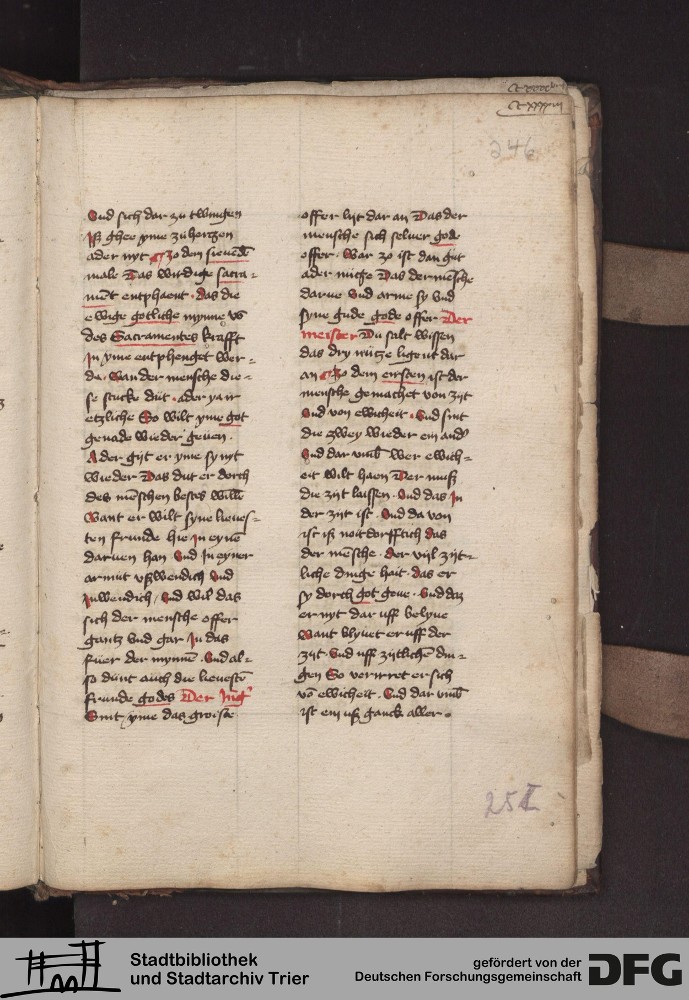 Vnd sich dar zu twingen
Iß ghee yme zü hertzen
ader nyt Zo dem sieuēdē
male Das wirdige sacra-
mēt entphaent. das die
ewige gotliche mynne vß
des Sacramentes krafft
In yme entphenget wer-
de. Wan der mensche die-
se stucke dut. ader ya ir
etzliche So wilt yme got
genade wieder geuen.
Ader gijt er yme sy nyt
wieder Das dut er dorch
des mēschen bestes willē
Want er wilt syne lieues-
ten frunde hie in eyne
daruen han Vnd In eyner
armut vßwendich Vnd
Inwendich / Vnd wil das
sich der mensche offer
gantz vnd gar In das
fuer der mynnē. Vnd al-
so dünt auch die lieuestē
frunde godes Der Iüg'
Sint yme das groiste
offer lijt dar an Das der
mensche sich seluer gode
offer. War zo ist dan gut
ader nütze Das der mēsche
darue vnd arme sy vnd
syne gude gode offer Der
meister Du salt wissen
das dry nütze ligent dar
an Zo dem eirsten ist der
mensche gemachet von zijt
Vnd von ewicheit. Vnd sint
die zwey wieder ein and'
Vnd dar vmb wer ewich-
eit wilt haen Der muß
die zijt laissen. Vnd das In
der zijt ist. Vnd da von
ist iß noitdorfftich das
der mēsche. der vijl zijt-
liche dinge hait. das er
sy dorch got geue. Vnd daz
er nyt dar uff belyue
Want blyuet er uff der
zijt. Vnd uff zijtlichē din-
gen So verirret er sich
vō ewicheit. Vnd dar vmb
ist ein uß ganck aller.
246
251
Stadtbibliothek
und Stadtarchiv Trier
gefördert von der
Deutschen Forschungsgemeinschaft
DFG